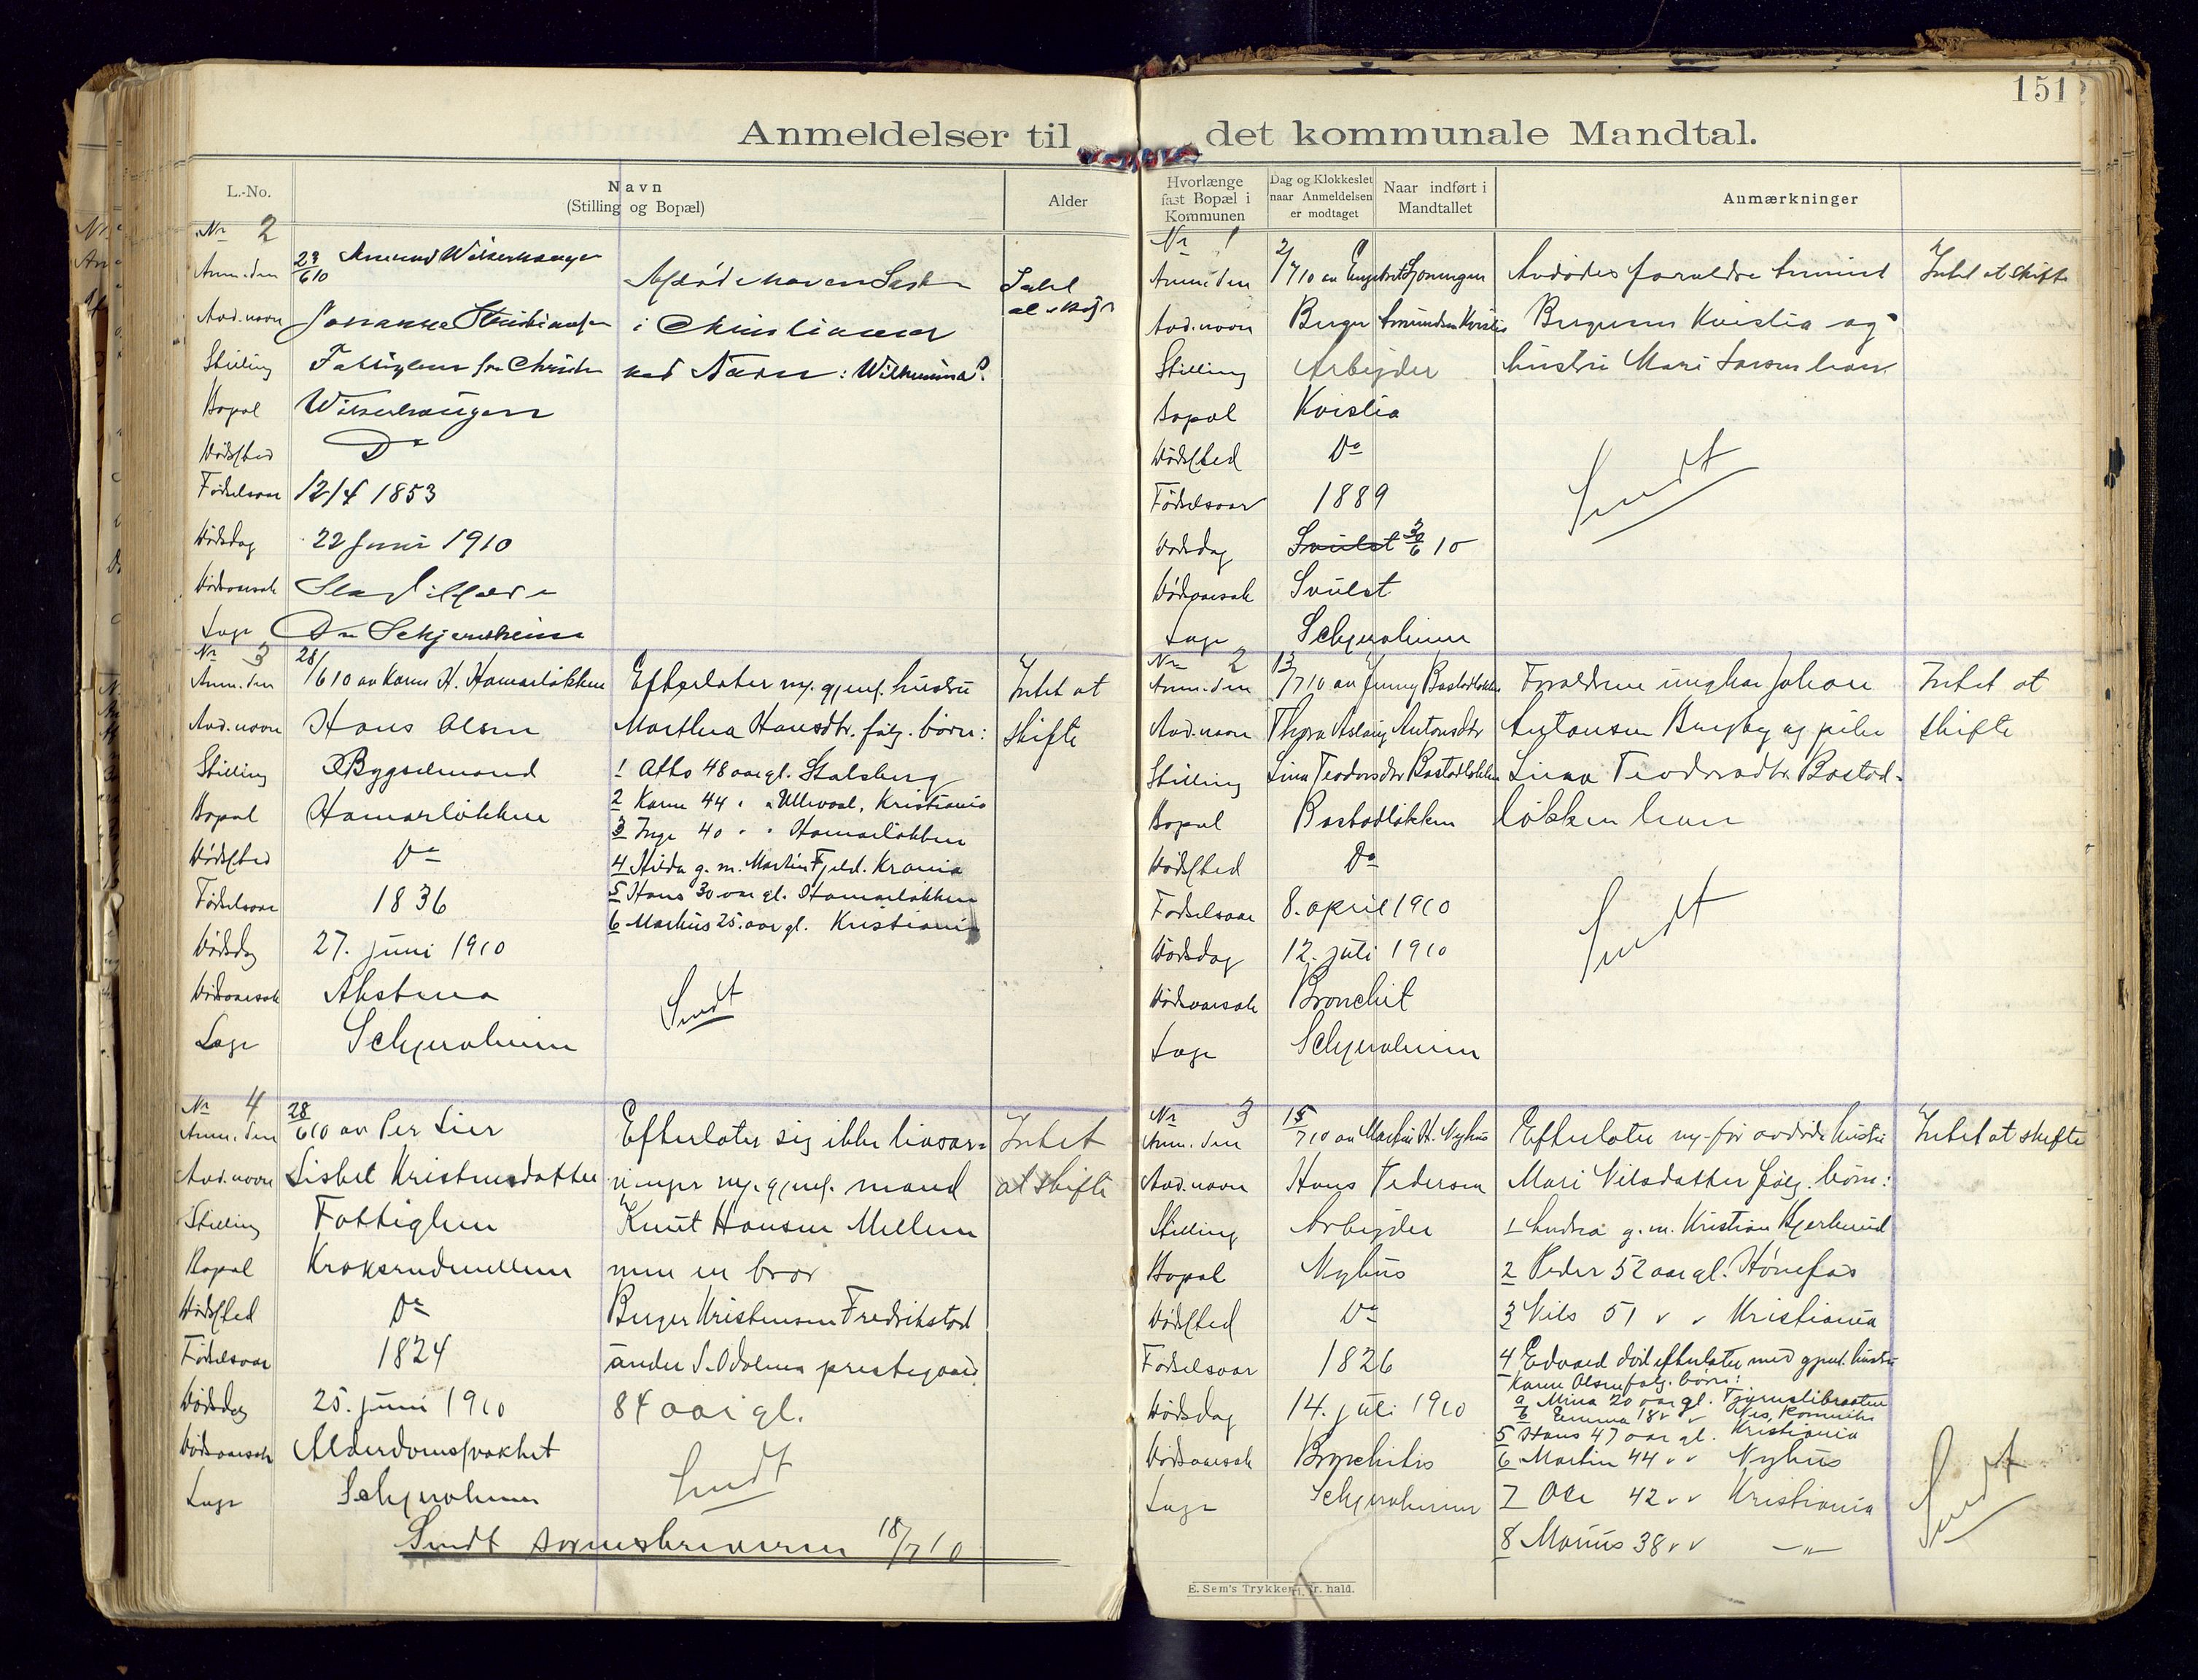 151
Anmeldelser til det kommunale Mandtal.
L.-No.
Navn
(Stilling og Bopæl)
Alder
Nr 2
Anm. den 23/6 10
Avd. navn
i Christiania
Stilling Fattiglem
Bopæl
Dødssted Do
Fødselsaar 12/4 1853
Dødsdag 22 Juni 1910
Dødsaarsak
Læge Dr Schjervheim
Nr 3
Anm. den 28/6 10 av Karen H. Hamarløkken
Avd. navn Hans Olsen
Stilling Bygselmand
Bopæl Hamarløkken
Dødssted Do
Fødselsaar 1836
Dødsdag 27. juni 1910
Dødsaarsak
Læge Schjervheim
Efterlater sig gjenl. hustru
Marthea Hansdtr. følg. børn:
1 Otto 48 aar gl. Stalsberg
2 Karen 44 " " Ullevaal, Kristiania
3 Inga 40 " " Hamarløkken
4 Hilda g. m. Martin Fjeld. Krania
5 Hans 30 aar gl. Hamarløkken
6 Markus 25 aar gl. Kristiania
Sendt
Intet at
skifte
Nr 4
Anm. den 28/6 10 av Per Lier
Avd. navn Lisbet Kristensdatter
Stilling Fattiglem
Bopæl Kroksrudmellem
Dødssted Do
Fødselsaar 1824
Dødsdag 25. juni 1910
Dødsaarsak Alderdomssvakhet
Læge Schjervheim
Efterlater sig ikke livsar=
vinger
gjenl. mand
Knut Hansen Mellem
men en bror
Birger Kristensen Fredrikstad
under S. Odalens prestegaard
84 aar gl.
Sendt
Intet
at skifte
Sendt sorenskriveren 18/7 10
Hvorlænge
fast Bopæl i
Kommunen
Dag og Klokkeslet
naar Anmeldelsen
er modtaget
Naar indført i
Mandtallet
Anmærkninger
Nr 1
Anm. den 2/7 10 av
Avd. navn Birger Amundsen Kvislia
Stilling Arbeider
Bopæl Kvislia
Dødssted Do
Fødselsaar 1889
Dødsdag Svulst 30/6 10
Dødsaarsak Svulst
Læge Schjervheim
Avdødes forældre Amund
Birgersen Kvislia og
hustru Mari
Sendt
Intet at skifte
Nr 2
Anm. den 13/7 10 av Jenny Bastadløkken
Avd. navn Thyra Aslaug Antonsdtr
Stilling Lina Teodorsdtr Bastadløkken
Bopæl Bastadløkken
Dødssted Do
Fødselsaar 8. april 1910
Dødsdag 12. juli 1910
Dødsaarsak Bronchit
Læge Schjervheim
Forældrene ungkar Johan
Antonsen Bugby og pike
Lina Teodorsdtr. Bastad-
løkken
Sendt
Intet at
skifte
Nr 3
Anm. den 15/7 10 av Martin H. Nyhus
Avd. navn Hans Pedersen
Stilling Arbeider
Bopæl Nyhus
Dødssted Do
Fødselsaar 1826
Dødsdag 14. juli 1910
Dødsaarsak Bronchitis
Læge Schjervheim
Efterlater sig før avdøde hustru
Mari Nilsdatter følg. børn:
1 Andrea g. m. Kristian Bjerkerud
2 Peder 52 aar gl. Hønefos
3 Nils 51 " " Kristiania
4 Edvard død efterlater med gjenl. hustru
Karen Olsen følg. børn:
a Mina 20 aar gl.
b Emma 18 " " Nes, Romerike
5 Hans 47 aar gl. Kristiania
6 Martin 44 " " Nyhus
7 Ole 42 " " Kristiania
8 Marius 38 " " —"—
Intet at skifte
Sendt
E. Sem's Trykkeri, Fr. hald.